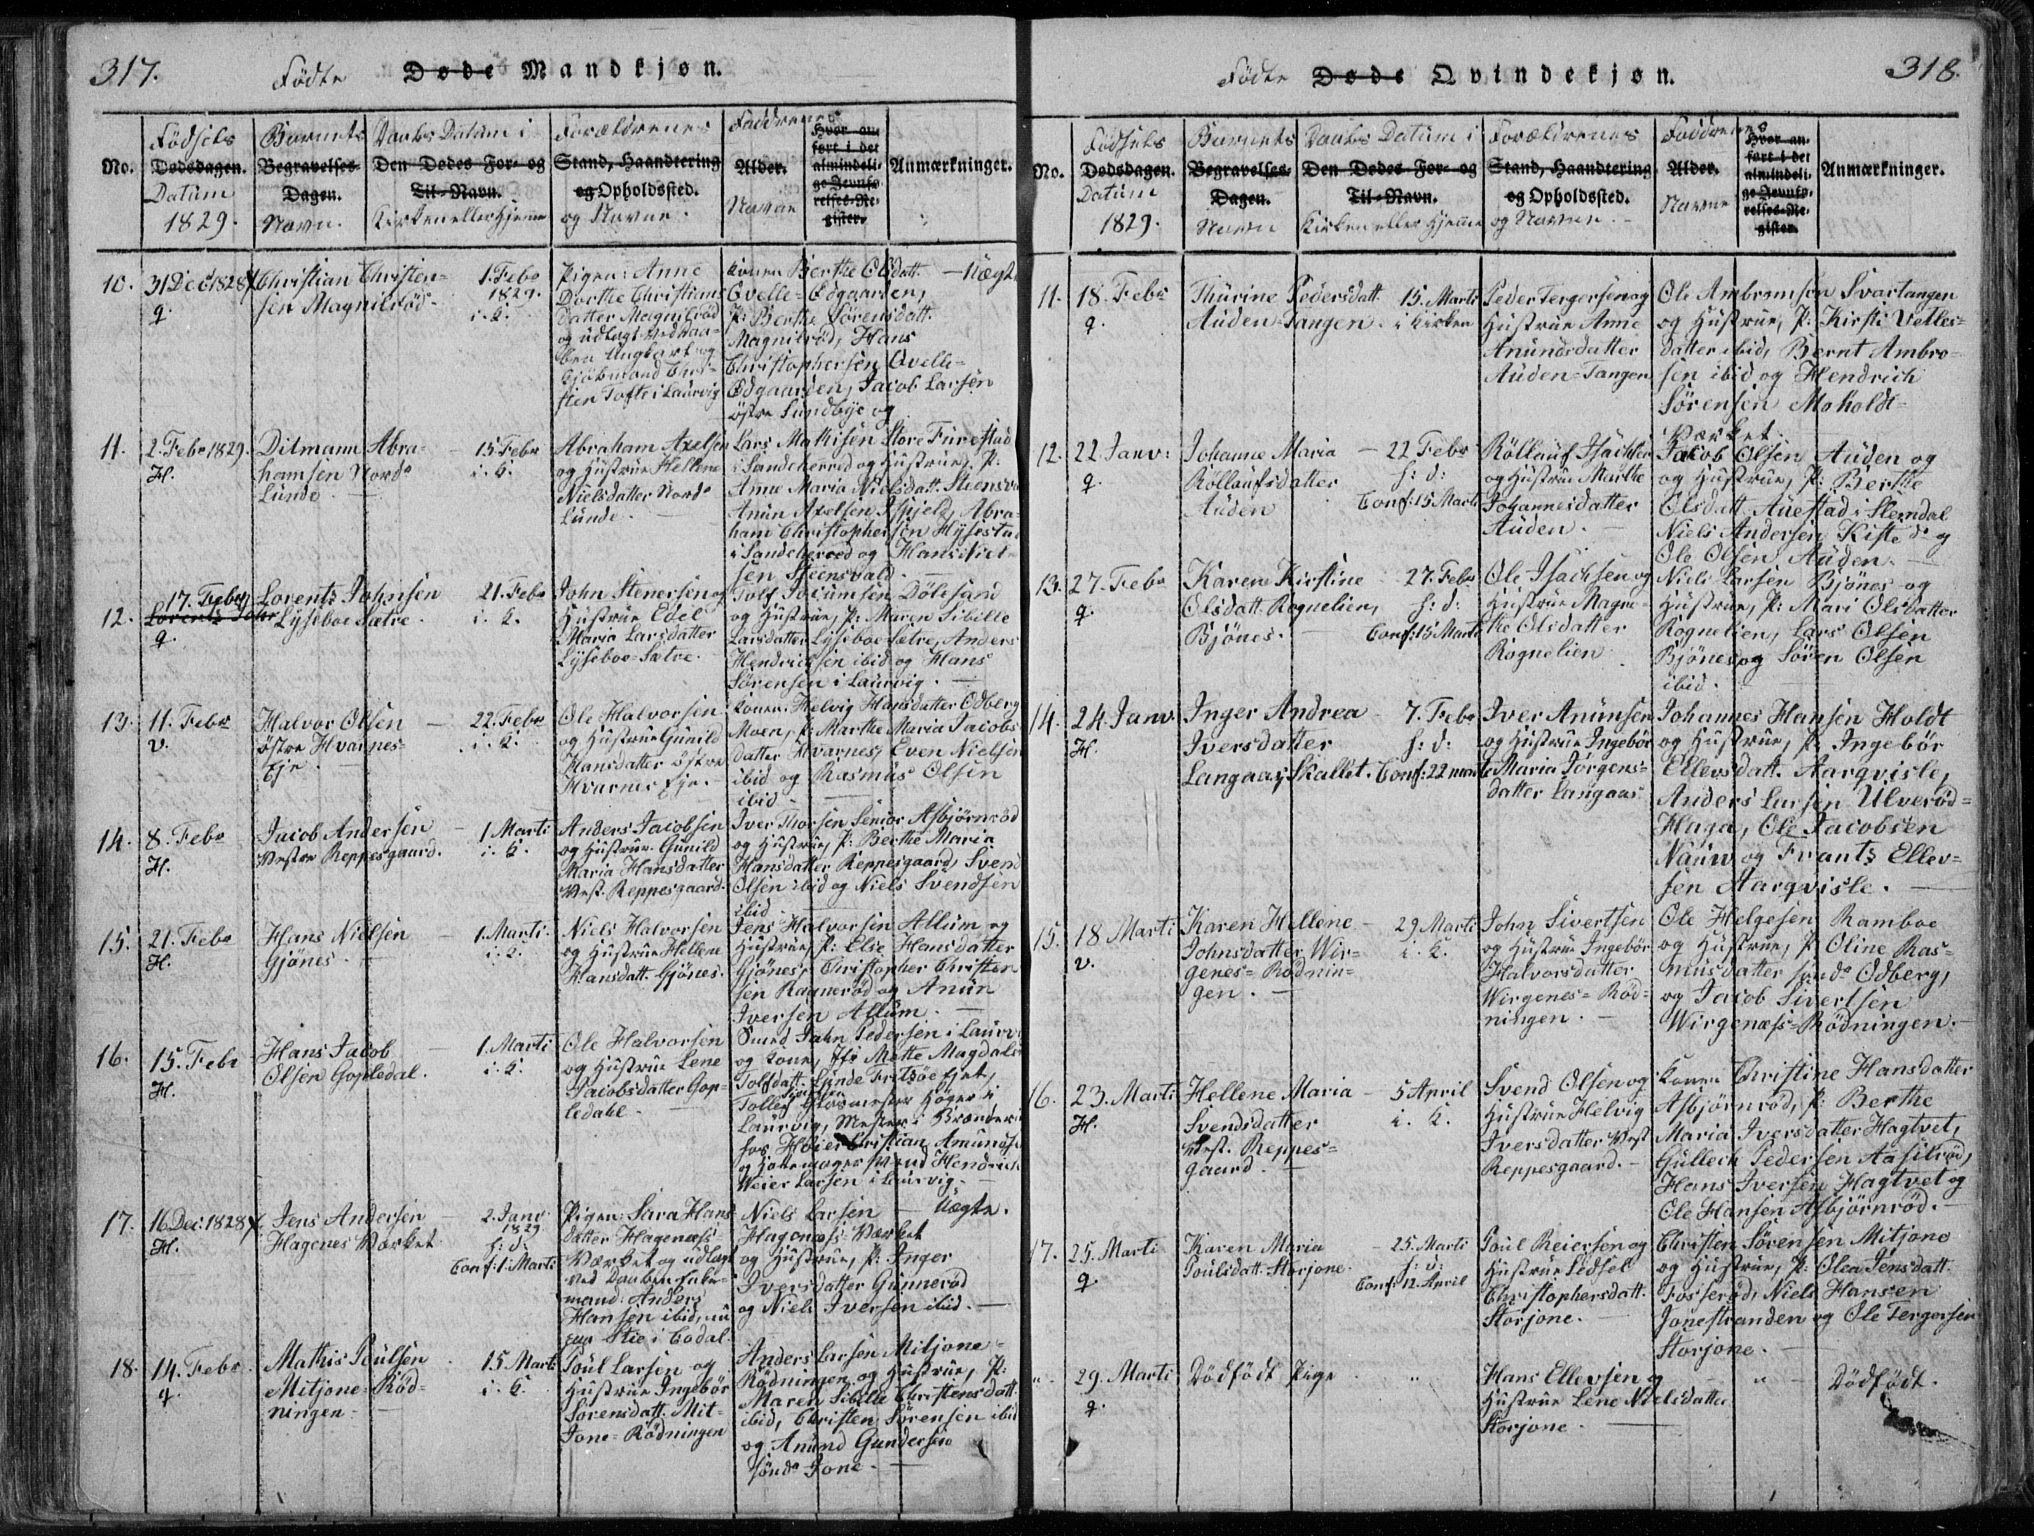 317.
Fødte Døde Mandkjøn.
No.
Fødsels
Dødsdagen.
Datum
1829.
Barnets
Begravelses-
Dagen.
Navn.
Daabs Datum i
Den Dødes For- og
Til-Navn.
Kirken eller Hjemme
Forældrenes
Stand, Haandtering
og Opholdssted.
og Navne.
Faddrenes
Alder.
Navne
Hvor an-
ført i det
almindeli-
ge Jevnfø-
relses-Re-
gister.
Anmærkninger.
10.
31 Dec: 1828
q.
Christian Christen-
sen Magnilrød
1. Febr
1829.
i. K.
Pigen: Anne
Dorthe Christians
Datter Magnilrød
og udlagt Bednaa-
ben Ungkarl og
Kjøbmand Chri-
sten Tofte i Laurvig
konen Berthe Olsdatt.
Qvelle-Odgaarden,
P: Berthe Sørensdatt.
Magnilrød, Hans
Christophersen Qvelle-
Odgaarden, Jacob Larsen
østre Sundbye og
– Uægte
11.
2. Febr 1829.
H.
Ditmann Abra-
hamsen Nordr
Lunde
15 Febr
i. K.
Abraham Axelsen
og Hustrue Hellene
Nielsdatter Nordr
Lunde.
Lars Mathisen Store Furestad
i Sandeherred og Hustrue, P:
Anne Maria Nielsdatt. Steensv
Anun Axelsen Skjeld, Abra-
ham Christophersen Hystad
i Sandeherred og Hans Niel-
sen Steensvald.
12.
17. Febr
Lorents John
q.
Lorents Johnsen
Lyseboe Sætre.
21. Febr
i. K.
John Stenersen og
Hustrue Edel
Maria Larsdatter
Lyseboe-Sætre.
Tolf Jocumsen Dølesand
og Hustrue, P: Maren Sibille
Larsdatter Lyseboe-Sætre, Anders
Hendrichsen ibid og Hans
Sørensen i Laurvig.
13.
11. Febr
v.
Halvor Olsen
østre Hvarnes-
Eje.
22. Febr
i. K.
Ole Halvorsen
og Hustrue Gunild
Hansdatter østre
Hvarnes Eje.
konen Helvig Hansdatter Odberg
Moen, P: Marthe Maria Jacobs
datter Hvarnes, Even Nielsen
ibid og Rasmus Olsen
ibid
14.
8. Febr
H.
Jacob Andersen
Vestre Reppesgaard.
1 Marti
i. K.
Anders Jacobsen
og Hustrue Gunild
Maria Hansdatter
Vest. Reppesgaard.
Iver Thorsen Senior Asbjørnrød
og Hustrue, P: Berthe Maria
Hansdatter Reppesgaard, Svend
Olsen ibid og Niels Svendsen
ibid
15.
21. Febr
H.
Hans Nielsen
Gjønes.
1. Marti.
i. K.
Niels Halvorsen
og Hustrue Hellene
Hansdatt. Gjønes.
Jens Halvorsen Allum og
Hustrue, P: Elie Hansdatter
Gjønes, Christopher Christen
sen Ragnerød og Anun
Iversen Allum.
16.
15. Febr
H.
Hans Jacob
Olsen Gopledal.
1. Marti
i. K.
Ole Halvorsen
og Hustrue Lene
Jacobsdatter Gop-
ledahl.
Smed Jahn Pedersen i Laurv
og kone, Mette Magdale
Tolfsdatt. Lunde Fritzøe Ejet,
Tollef Glasmester Høger i
Laurvig, Mester i Brænde
Christian Amunds
og Hattemager Hendrich
Meier Larsen i Laurvig.
17.
16 Dec: 1828
H.
Jens Andersen
Hagenes Værket
2. Janv
1829
h: d:
Conf: 1. Marti
Pigen: Sara Hans
datter Hagenæss
Værket og udlagt
ved Daaben
mand: Anders
Hansen ibid, nu
paa Stie i Kodal
Niels Larsen
Hagenæss Værket
og Hustrue, P: Inger
Iversdatter Gunnerød
og Niels Iversen ibid.
– Uægte.
18.
14. Febr.
q.
Mathis Poulsen
Mitjone-Rød-
ningen.
15. Marti
i. K.
Poul Larsen og
Hustrue Ingebør
Sørensdatt. Mit-
Jone-Rødningen
Anders Larsen Mitjone-
Rødningen og Hustrue, P:
Maren Sibille Christensdatt.
ibid, Christen Sørensen ibid
og Anund Gundersen
søndr Jone.
318.
Fødte Døde Qvindekjøn.
No.
Fødsels
Dødsdagen.
Datum
1829.
Barnets
Begravelses-
Dagen.
Navn
Daabs Datum i
Den Dødes For- og
Til-Navn.
Kirken eller Hjemme
Forældrenes
Stand, Haandtering
og Opholdssted.
og Navne.
Faddrenes
Alder.
Navne
Hvor an-
ført i det
almindeli-
ge Jevnfø-
relses-Re-
gister.
Anmærkninger.
11.
18. Febr
q.
Thurine Pedersdatt.
Auden-Tangen.
15. Marti
i Kirken
Peder Tergersen og
Hustrue Anne
Anundsdatter
Auden-Tangen
Ole Ambrømsen Svartangen
og Hustrue, P: Kirsti Velles-
datter ibid, Bernt Ambro-
sen ibid og Hendrich
Sørensen Moholdt-
Værket.
12.
22 Janv:
q.
Johanne Maria
Rollaufsdatter
Auden
22 Febr
h: d:
Conf: 15 Marti
Røllauf Isachsen
og Hustrue Marthe
Johannesdatter
Auden.
Jacob Olsen Auden og
og Hustrue, P: Berthe
Olsdatt. Auestad i Slemdal
Niels Andersen Kiste dr og
Ole Olsen Auden.
13.
27. Febr
q.
Karen Kirstine
Olsdatt. Rognelien,
Bjønes.
27. Febr
h: d:
Conf: 15 Marti
Ole Isachsen og
Hustrue Magne-
the Olsdatter
Rognelien
Niels Larsen Bjønes og
Hustrue, P: Mari Olsdatter
Rognelien, Lars Olsen
Bjønes og Søren Olsen
ibid.
14.
24 Janv
H.
Inger Andrea
Iversdatter
Langaas, Skallet.
7. Febr
h: d:
Conf: 22 marti
Iver Anunsen
og Hustrue Ingebør
Maria Jørgens-
datter Langaas
Johannes Hansen Holdt
og Hustrue, P: Ingebør
Ellevsdatt. Aarqvisle,
Anders Larsen Ulverød-
Haga, Ole Jacobsen
Nauw og Frants Ellev-
sen Aarqvisle.
15.
18 Marti
v.
Karen Hellene
Johnsdatter Wir-
genes-Rødnin-
gen.
29 Marti
i. K.
John Sivertsen
og Hustrue Ingebør
Halvorsdatter
Wirgenes-Rød-
ningen.
Ole Helgesen Ramboe
og Hustrue, P: Oline Ras-
musdatter søndr Odberg,
og Jacob Sivertsen
Wirgenæss-Rødningen.
16.
23. Marti
H.
Hellene Maria
Svendsdatter
Vest. Reppes-
gaard.
5 April
i. K.
Svend Olsen og
Hustrue Helvig
Iversdatter Vest
Reppesgaard.
konen Christine Hansdatter
Asbjørnrød, P: Berthe
Maria Iversdatter Hagtvet,
Gullech Pedersen Aasilrød,
Hans Iversen Hagtvet og
Ole Hansen Asbjørnrød.
17.
25. Marti
q.
Karen Maria
Poulsdatt. Storjone.
25. Marti
h: d:
Conf: 12. April
Poul Reiersen og
Hustrue Sidsel
Christophersdatt.
Storjone.
Christen Sørensen Mitjone
og Hustrue, P: Olea Jensdatt.
Fosserød, Niels Hansen
Jonestranden og Ole Tergersen
Storjone.
"
29. Marti
q.
Dödfödt Pige
"
Hans Ellevsen og
Hustrue Lene Nielsdatter
Storjone
"
Dödfödt.